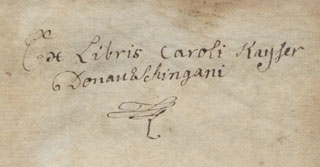 Ex Libris Caroli Kayser
Donaueschingani